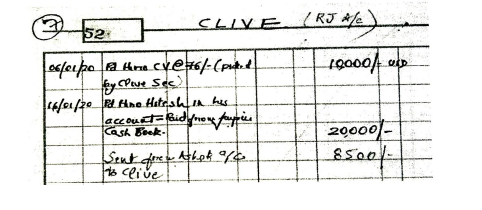 7 52 CLIVE (RJ A/c)
06/01/20 Pd thro CV @ 76/- ( 10,000/- USD
by Clive Sec)
16/01/20 Pd thro Hitesh in his
account = Paid from
Cash Book. 20,000/-
Sent from Ashok a/c 8500/-
to Clive